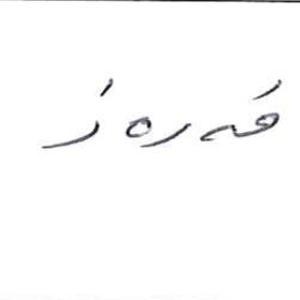 فەرەز